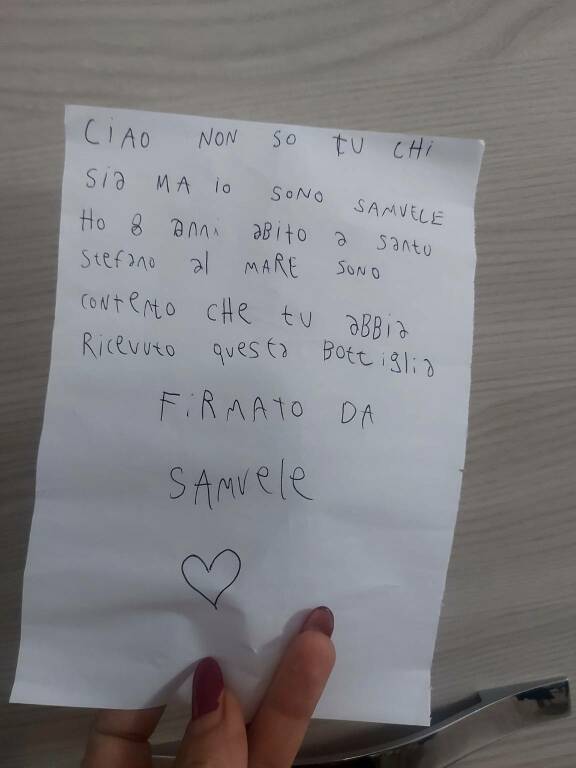 CIAO NON SO TU CHI
Sia MA io SONO SAMUELE
Ho 8 anni aBiTO a SanTO
STeFano al MARE SONO
CONTENTO CHe TU aBBia
RiceVUTO questa BOTTiglia
FiRMATO DA
SAMUele